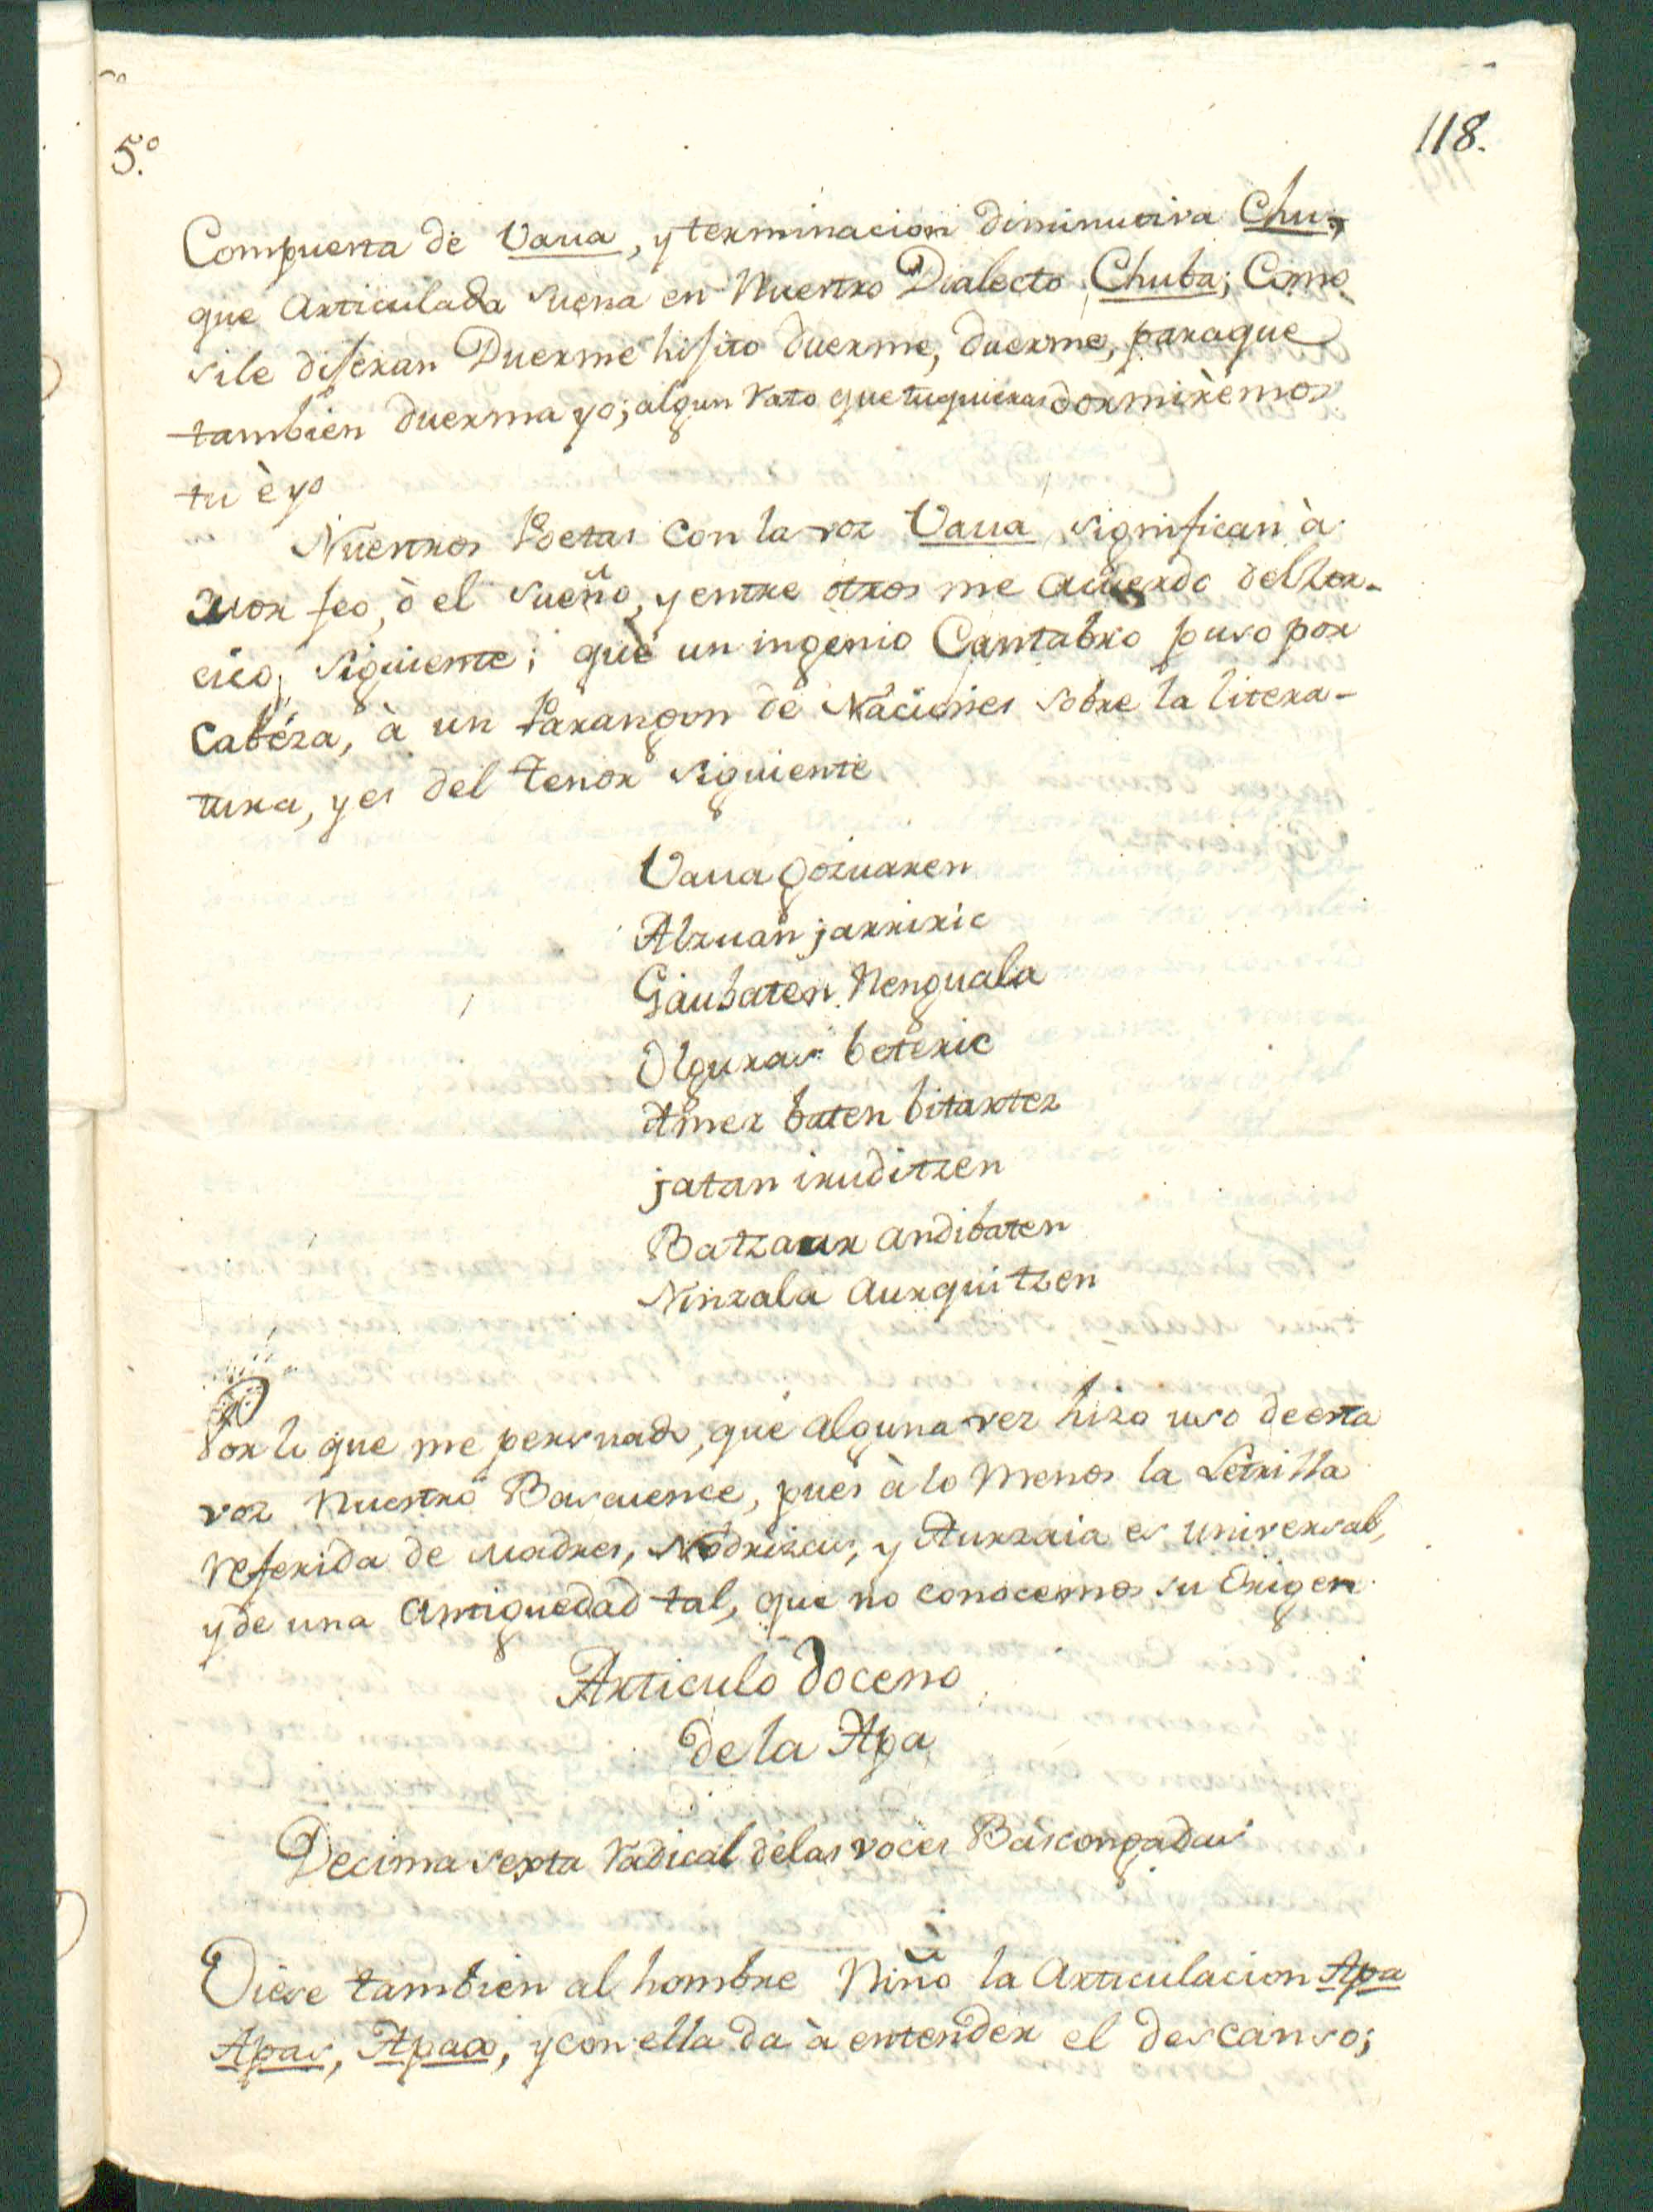 5.º
118.
Compuesta de Vaua, y terminacion diminutiva Chu,
que Articulada suena en Nuestro Dialecto Chuba; Como
sile dijeran Duerme hijito duerme, duerme, paraque
tambien duerma yo; algun rato que tuquieras dormirèmos
tu è yo
Nuestros Poetas con la voz Vaua significan à
Morfeo, ò el sueño, y entre otros me acuerdo del
siguiente; què un ingenio Cantabro puso por
Cabéza, à un Parangon de Naciones sobre la litera-
tura, y es del tenor siguiente
Vaua gozuaren
Alzuan jarriric
Gaubaten Nenguala
Olguras beteric
Amez baten bitartez
jatan iruditzen
Batzaar andibaten
Ninzala aurquitzen
Por lo que me persuado, què alguna vez hizo uso de esta
voz Nuestro Bascuence, pues à lo menos la Letrilla
referida de Madres, Nodrizas, y Aurzaia es universal,
y de una Antiguedad tal, que no conocemos su Origen
Articulo doceno
de la Apa
Decima sexta radical delas voces Bascongadas
Oiese tambien al hombre Niño la Articulacion Apa
Apas, Apax, y con ella da à entender el descanso;